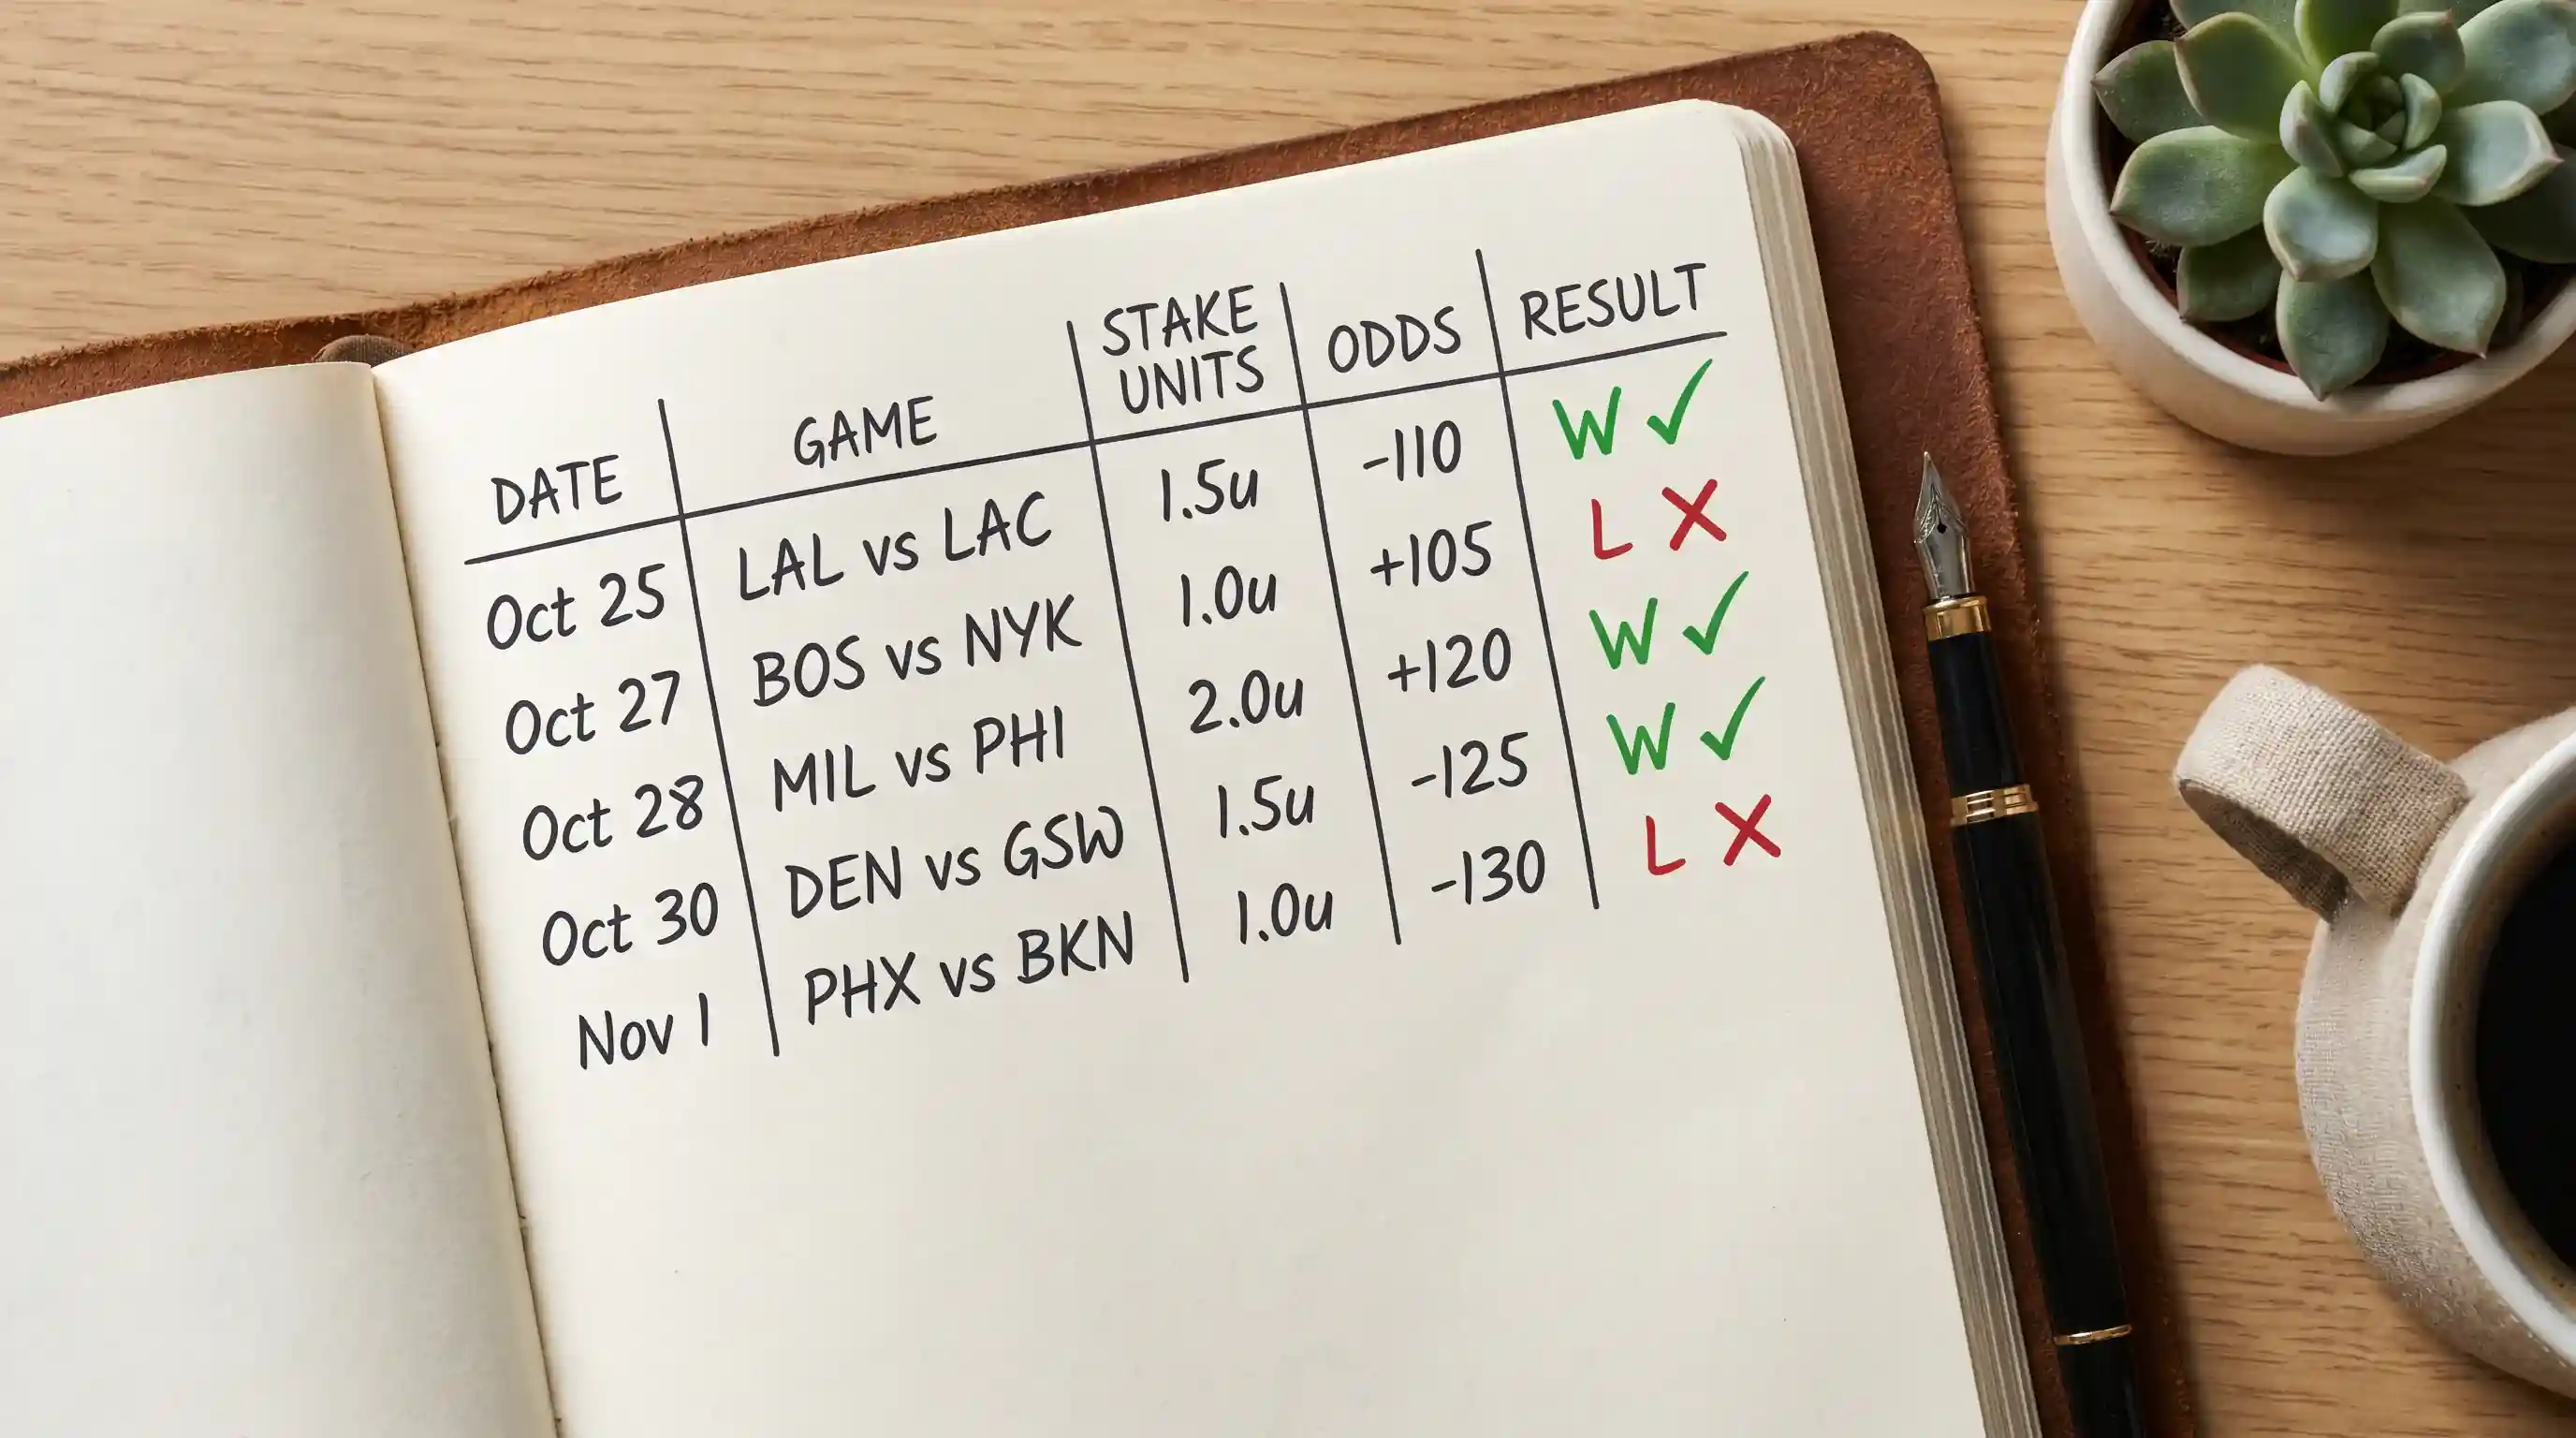 DATE GAME STAKE UNITS ODDS RESULT
Oct 25 LAL vs LAC 1.5u -110 W ✓
Oct 27 BOS vs NYK 1.0u +105 L X
Oct 28 MIL vs PHI 2.0u +120 W ✓
Oct 30 DEN vs GSW 1.5u -125 W ✓
Nov 1 PHX vs BKN 1.0u -130 L X